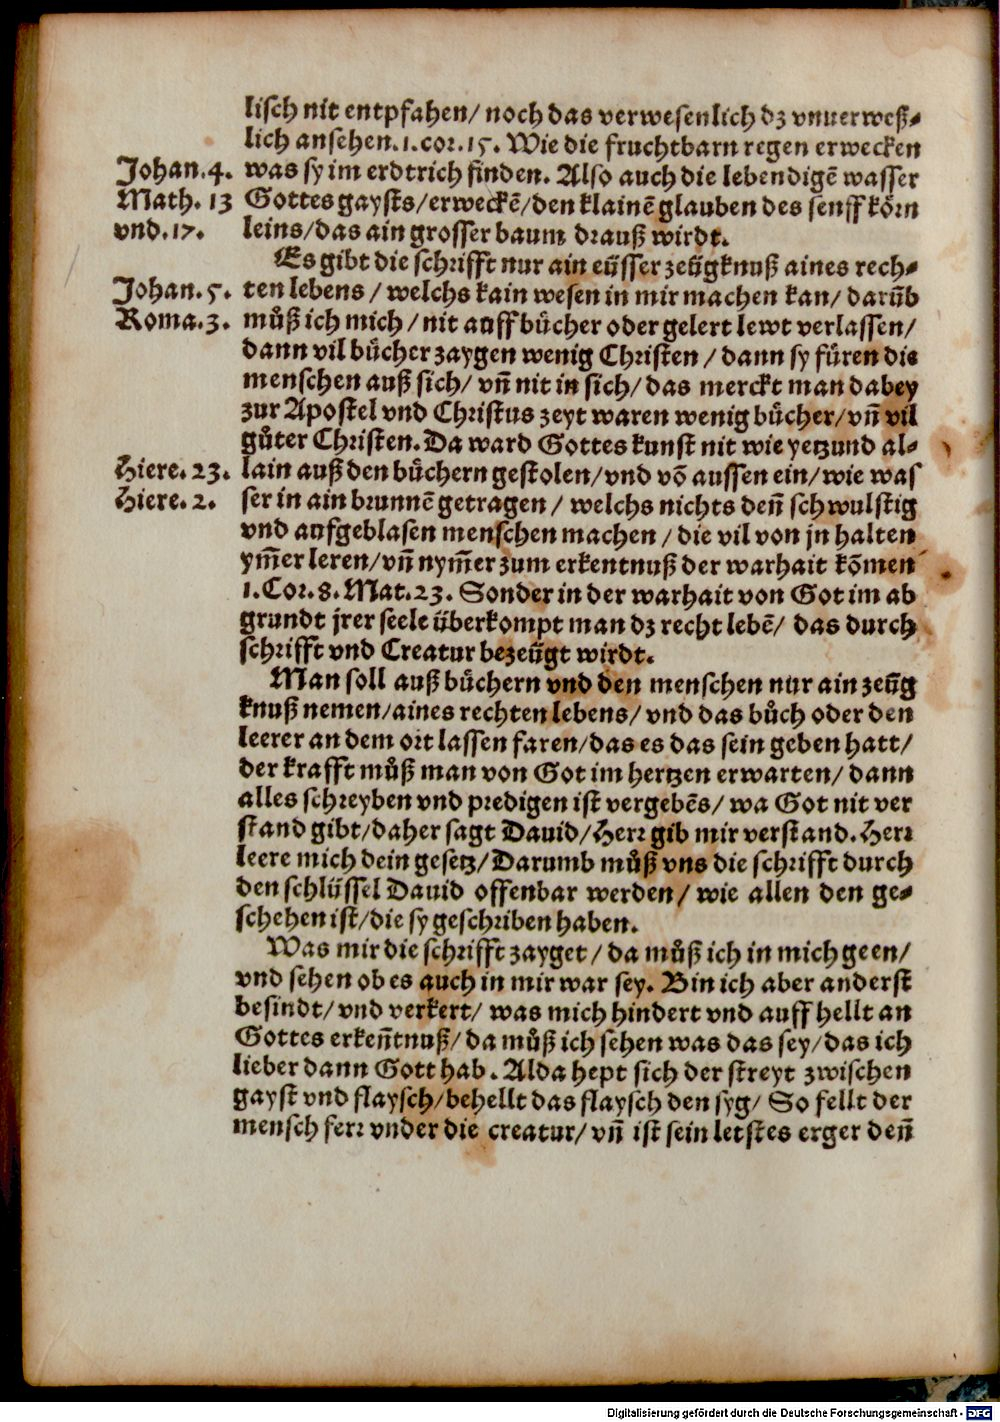 lisch nit entpfahen/ noch das verwesenlich dz vnuerweß-
lich ansehen.1.cor.15. Wie die fruchtbarn regen erwecken
Johan.4. was sy im erdtrich finden. Also auch die lebendigē wasser
Math. 13 Gottes gaysts/erweckē/den klainē glauben des senff körn
vnd.17. leins/das ain grosser baum drauß wirdt.
Es gibt die schrifft nur ain eüsser zeügknuß aines rech-
Johan.5. ten lebens / welchs kain wesen in mir machen kan/ darüb
Roma.3. můß ich mich / nit auff bücher oder gelert lewt verlassen/
dann vil bücher zaygen wenig Christen / dann sy füren die
menschen auß sich/ vñ nit in sich/ das merckt man dabey
zur Apostel vnd Christus zeyt waren wenig bücher/ vñ vil
gůter Christen. Da ward Gottes kunst nit wie yetzund al-
Hiere. 23. lain auß den büchern gestolen/vnd vō aussen ein/wie was
Hiere. 2. ser in ain brunnē getragen / welchs nichts deñ schwulstig
vnd aufgeblasen menschen machen / die vil von jn halten
ym̄er leren/vñ nym̄er zum erkentnuß der warhait kōmen
1.Cor.8.Mat.23. Sonder in der warhait von Got im ab
grundt jrer seele überkompt man dz recht lebē/ das durch
schrifft vnd Creatur bezeügt wirdt.
Man soll auß büchern vnd den menschen nur ain zeüg
knuß nemen/aines rechten lebens/ vnd das bůch oder den
leerer an dem ort lassen faren/das es das sein geben hatt/
der krafft můß man von Got im hertzen erwarten/ dann
alles schreyben vnd predigen ist vergebēs/ wa Got nit ver
stand gibt/daher sagt Dauid/Herr gib mir verstand. Herr
leere mich dein gesetz/Darumb můß vns die schrifft durch
den schlüssel Dauid offenbar werden/ wie allen den ge-
schehen ist/die sy geschriben haben.
Was mir die schrifft zayget / da můß ich in mich geen/
vnd sehen ob es auch in mir war sey. Bin ich aber anderst
besindt/ vnd verkert/ was mich hindert vnd auff hellt an
Gottes erkeñtnuß/ da můß ich sehen was das sey/das ich
lieber dann Gott hab. Alda hept sich der streyt zwischen
gayst vnd flaysch/behellt das flaysch den syg/ So fellt der
mensch ferr vnder die creatur/ vñ ist sein letstes erger deñ
Digitalisierung gefördert durch die Deutsche Forschungsgemeinschaft - DFG